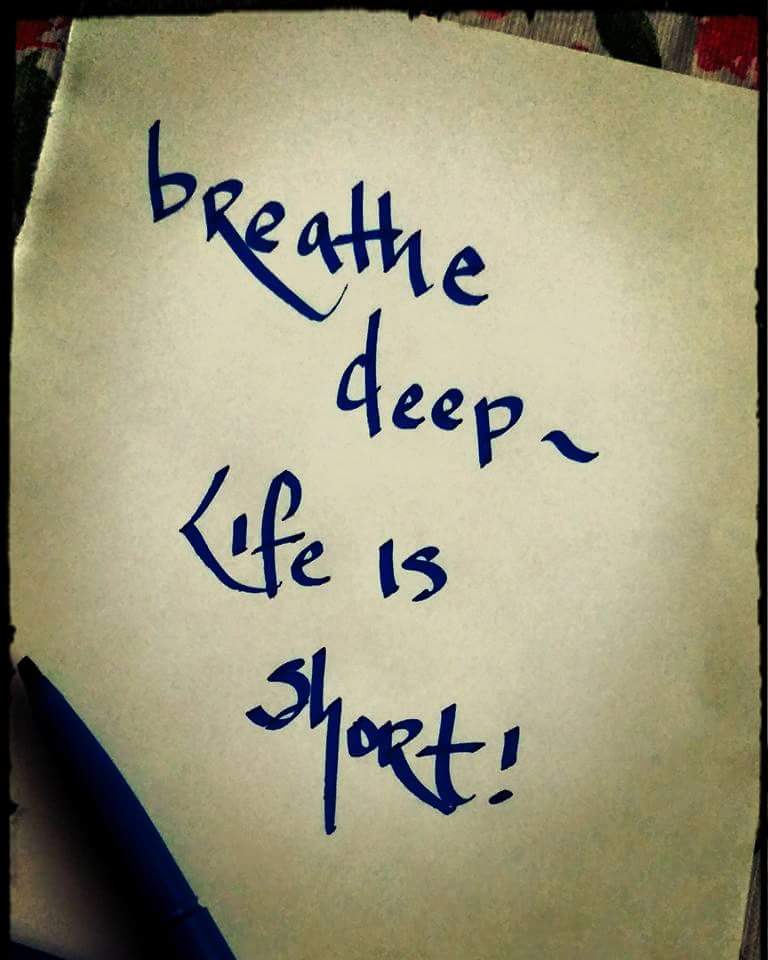 breathe
deep~
Life is
short!